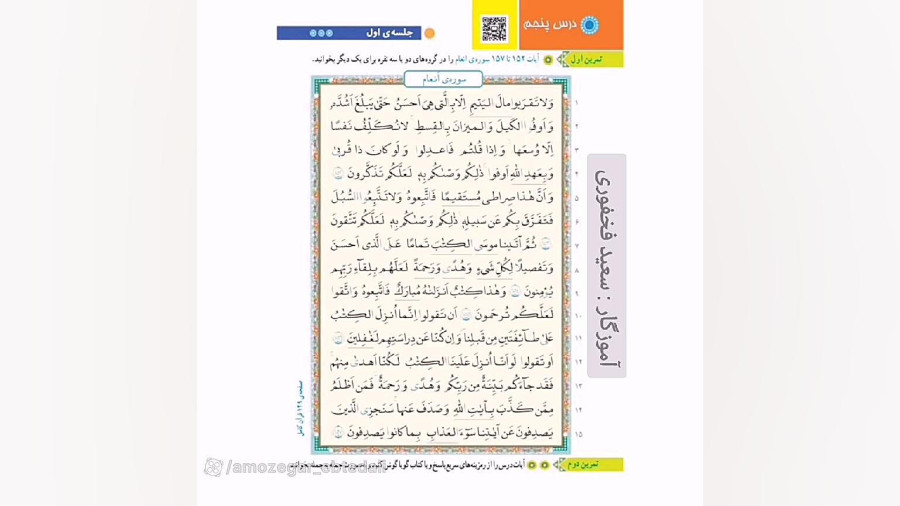 درس پنجم
جلسه‌ی اول
تمرین اول
آیات ۱۵۲ تا ۱۵۷ سوره‌ی انعام را در گروه‌های دو یا سه نفره برای یک دیگر بخوانید.
سوره‌ی أنعام
۱ وَلا تَقرَبوا مالَ اليَتيمِ اِلّا بِالَّتى هِىَ اَحسَنُ حَتّىٰ يَبلُغَ اَشُدَّهُ
۲ وَ اَوفُوا الكَيلَ وَ الميزانَ بِالقِسطِ لا نُكَلِّفُ نَفسًا
۳ اِلّا وُسعَها وَ اِذا قُلتُم فَاعدِلوا وَ لَو كانَ ذا قُربىٰ
۴ وَ بِعَهدِ اللّٰهِ اَوفوا ذٰلِكُم وَصّٰىكُم بِهٖ لَعَلَّكُم تَذَكَّرونَ
۵ وَ اَنَّ هٰذا صِراطى مُستَقيمًا فَاتَّبِعوهُ وَلا تَتَّبِعُوا السُّبُلَ
۶ فَتَفَرَّقَ بِكُم عَن سَبيلِهٖ ذٰلِكُم وَصّٰىكُم بِهٖ لَعَلَّكُم تَتَّقونَ
۷ ثُمَّ آتَينا موسَى الكِتٰبَ تَمامًا عَلَى الَّذى اَحسَنَ
۸ وَ تَفصيلًا لِكُلِّ شَىءٍ وَ هُدًى وَ رَحمَةً لَعَلَّهُم بِلِقاءِ رَبِّهِم
۹ يُؤمِنونَ وَ هٰذا كِتٰبٌ اَنزَلنٰهُ مُبارَكٌ فَاتَّبِعوهُ وَ اتَّقوا
۱۰ لَعَلَّكُم تُرحَمونَ اَن تَقولوا اِنَّما اُنزِلَ الكِتٰبُ
۱۱ عَلىٰ طآئِفَتَينِ مِن قَبلِنا وَ اِن كُنّا عَن دِراسَتِهِم لَغٰفِلينَ
۱۲ اَو تَقولوا لَو اَنّا اُنزِلَ عَلَينَا الكِتٰبُ لَكُنّا اَهدىٰ مِنهُم
۱۳ فَقَد جآءَكُم بَيِّنَةٌ مِن رَبِّكُم وَ هُدًى وَ رَحمَةٌ فَمَن اَظلَمُ
۱۴ مِمَّن كَذَّبَ بِآيٰتِ اللّٰهِ وَ صَدَفَ عَنها سَنَجزِى الَّذينَ
۱۵ يَصدِفونَ عَن آيٰتِنا سوٓءَ العَذابِ بِما كانوا يَصدِفونَ
صفحه‌ی ۱۴۹ قرآن کامل
تمرین دوم
آیات درس را از رمزینه‌های سریع پاسخ و یا کتاب گویا گوش کنید و
آموزگار : سعید فخفوری